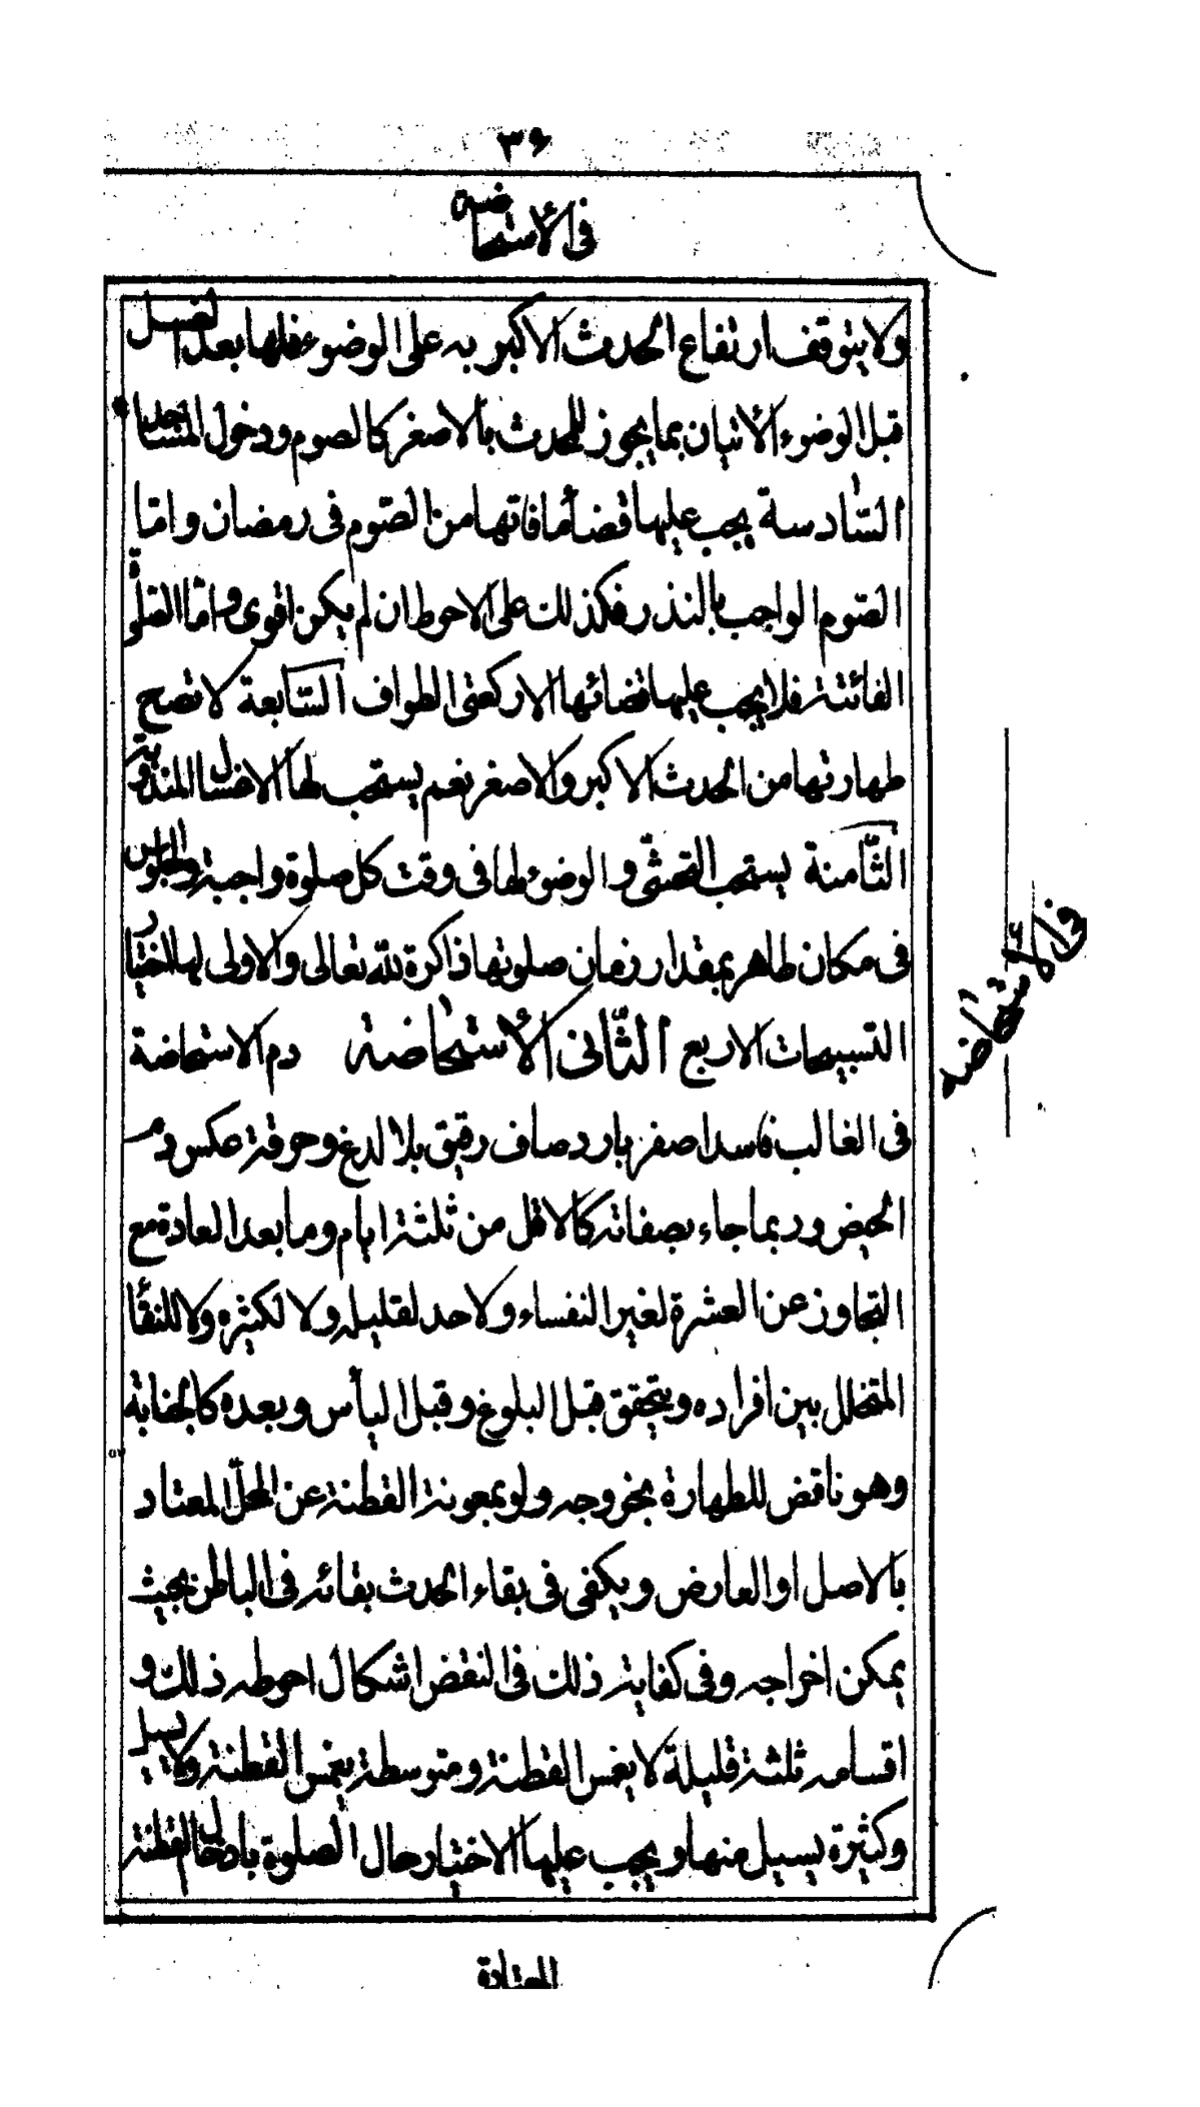 ٣۶
في الأستحاضة
ولا يتوقف ارتفاع الحدث الاكبر به على الوضوء فلها بعد الغسل
قبل الوضوء الأتيان بما يجوز للمحدث بالاصغر كالصوم ودخول المساجد
السّادسة يجب عليها قضأ ما فاتها من الصّوم فى رمضان وامّا
الصّوم الواجب بالنذر فكذلك على الاحوط ان لم يكن اقوى وامّا الصّلوة
الفائتة فلا يجب عليها قضائها الا ركعتى الطواف السّابعة لا تصح
طهارتها من الحدث الاكبر والاصغر نعم يستحب لها الاغسال المندوبة
الثّامنة يستحب التحشّى والوضوء لها فى وقت كل صلوة واجبة والجلوس
فى مكان طاهر بمقدار زمان صلوتها ذاكرة لله تعالى والاولى لها اختيار
التسبيحات الاربع الثّانى الأستحاضة دم الاستحاضة
فى الغالب فاسد اصفر بارد صاف رقيق بلا لدغ وحرقة عكس دم
الحيض وربما جاء بصفاته كالاقل من ثلثة ايام وما بعد العادة مع
التجاوز عن العشرة لغير النفساء ولا حد لقليله ولا لكثيره ولا للنقأ
المتخلل بين افراده ويتحقق قبل البلوغ وقبل اليأس وبعده كالجنابة
وهو ناقض للطهارة بخروجه ولو بمعونة القطنة عن المحلّ المعتاد
بالاصل او العارض ويكفى فى بقاء الحدث بقائه فى الباطن بحيث
يمكن اخراجه وفى كفاية ذلك فى النقض اشكال احوطه ذلك و
اقسامه ثلثة قليلة لا يغمس القطنة ومتوسطة يغمس القطنة ولا يسيل
وكثيرة يسيل منها ويجب عليها الاختبار حال الصلوة بادخال القطنة
المعتادة
فى الأستحاضه